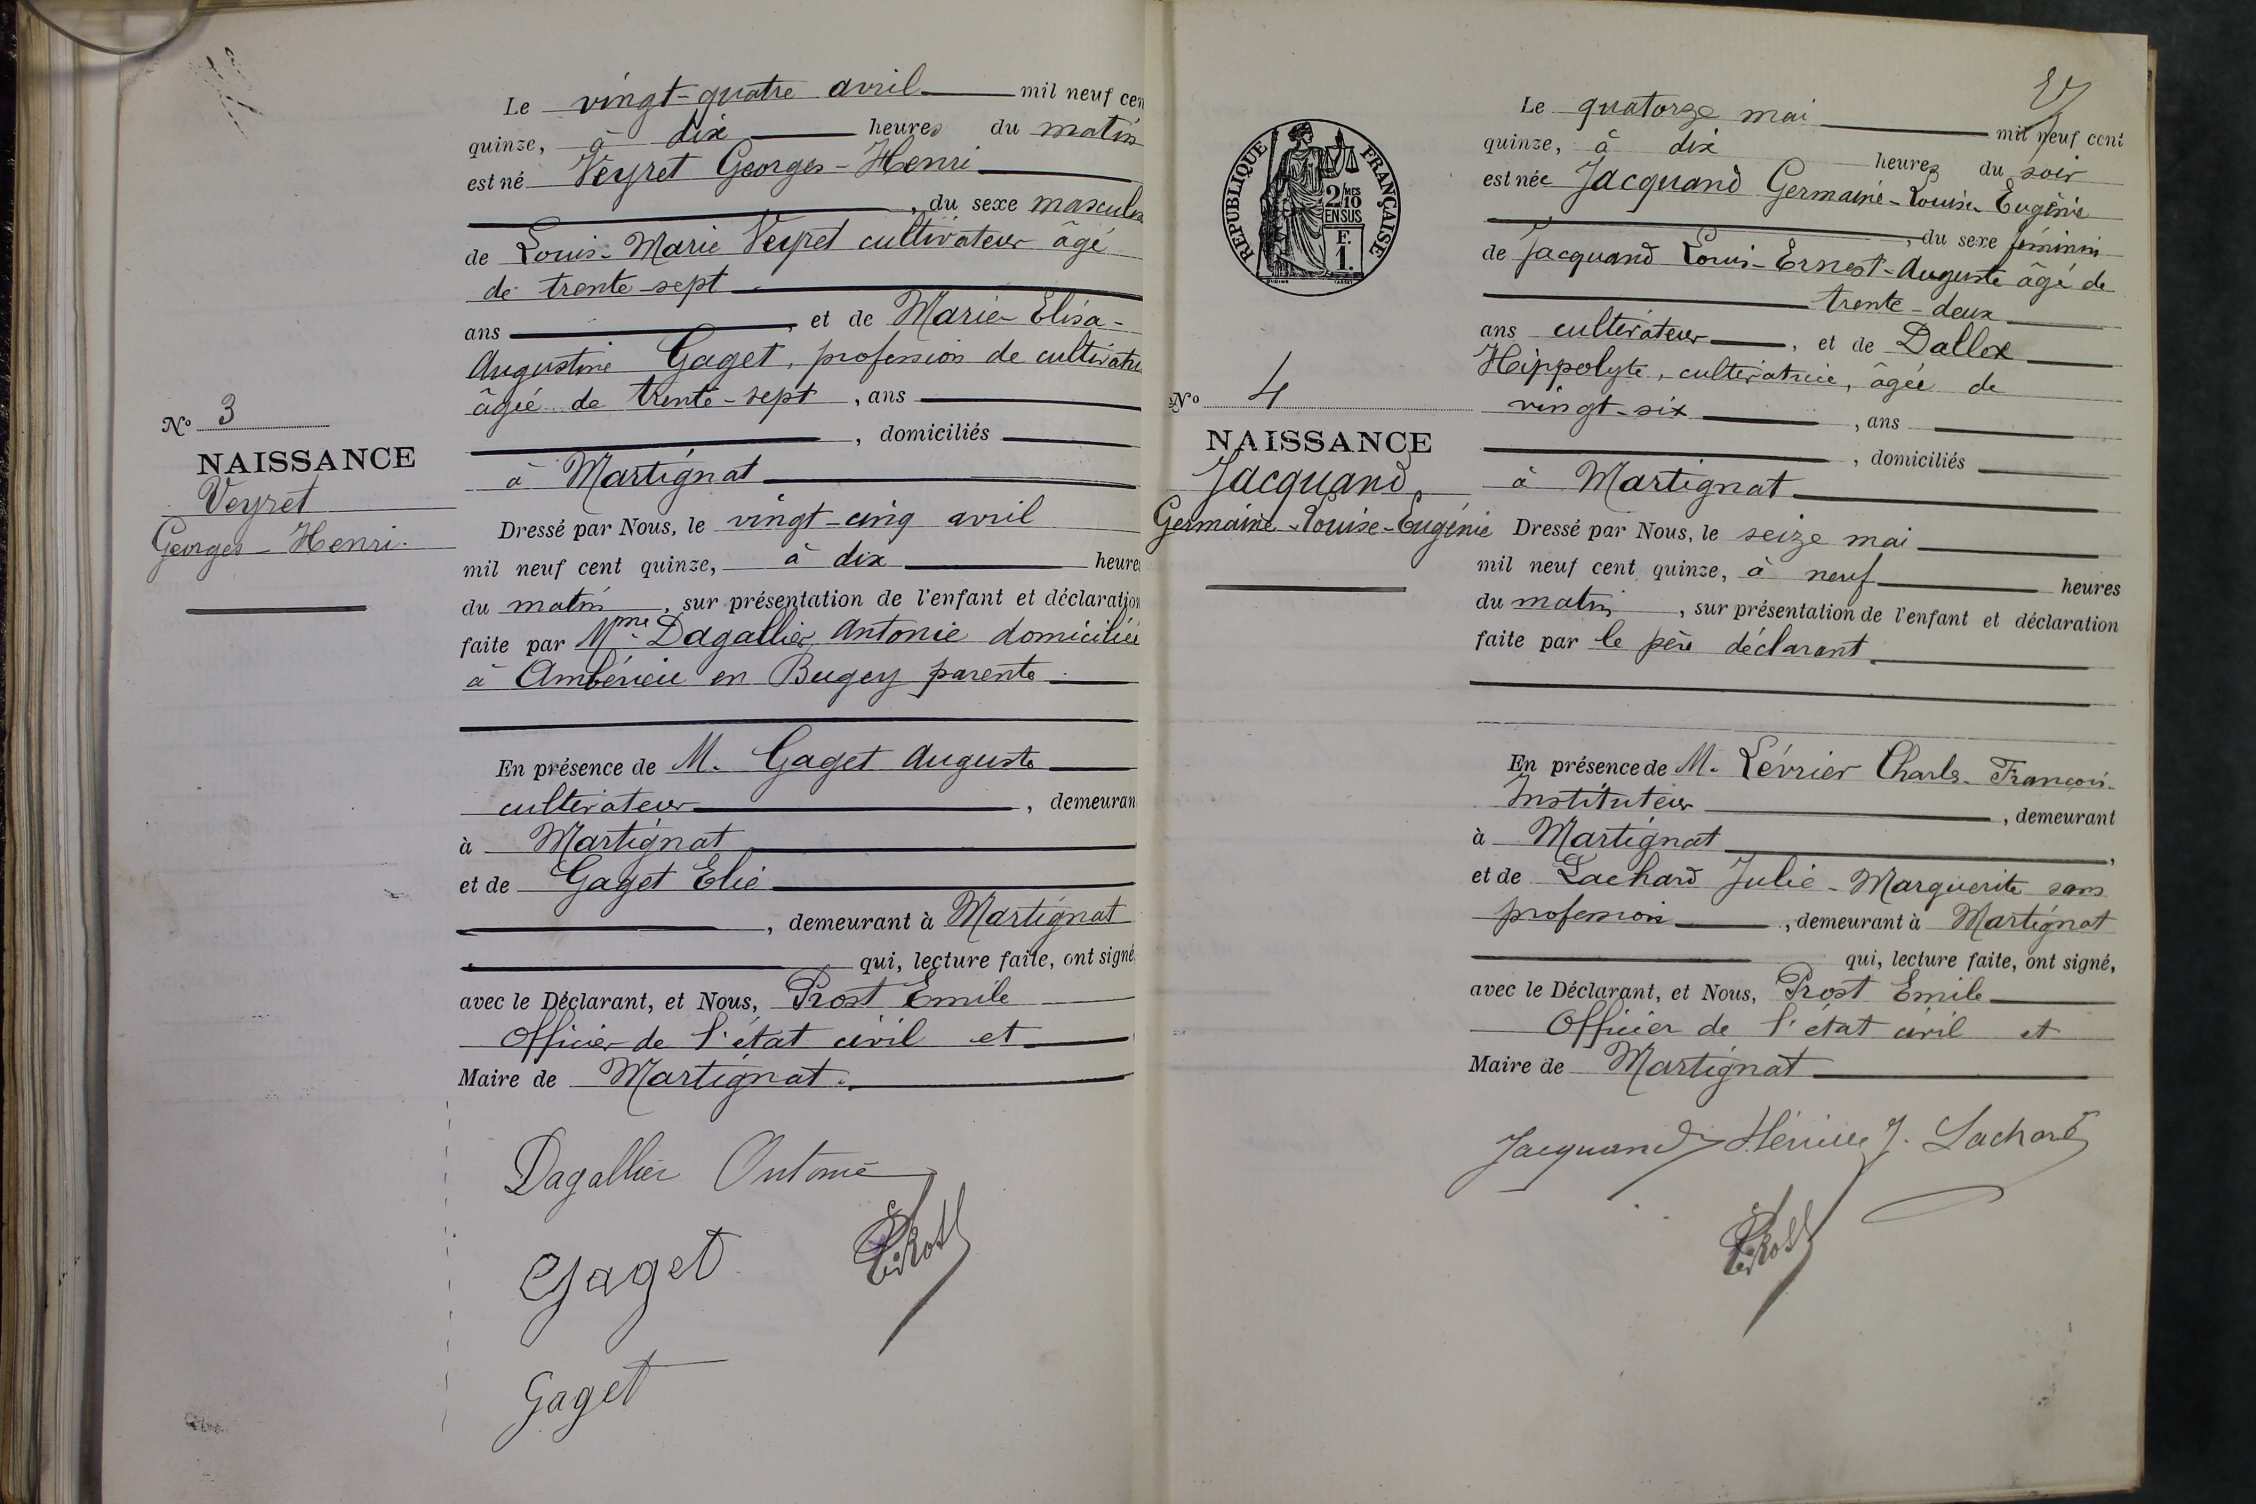 N° 3
NAISSANCE
Veyret
Georges-Henri.
Le vingt-quatre avril mil neuf cen
quinze, à dix heures du matin
est né Veyret Georges-Henri
, du sexe masculin
de Louis-Marie Veyret cultivateur âgé
de trente-sept
ans , et de Marie-Elisa-
Augustine Gaget, profession de cultivatri
âgée de trente-sept , ans
, domiciliés
à Martignat
Dressé par Nous, le vingt-cinq avril
mil neuf cent quinze, à dix heures
du matin , sur présentation de l'enfant et déclaration
faite par Mme Dagallier Antonie domiciliée
à Ambérieu en Bugey parente
En présence de M. Gaget Auguste
cultivateur , demeuran
à Martignat
et de Gaget Elie
, demeurant à Martignat
qui, lecture faite, ont signé
avec le Déclarant, et Nous, Prost Emile
Officier de l'état civil et
Maire de Martignat.
Dagallier Antonie
Gaget
E. Prost
Gaget
REPUBLIQUE FRANÇAISE
2/10 MES
EN SUS
F.
1.
N° 4
NAISSANCE
Jacquand
Germaine-Louise-Eugénie
Le quatorze mai mil neuf cent
quinze, à dix heures du soir
est née Jacquand Germaine-Louise-Eugénie
, du sexe féminin
de Jacquand Louis-Ernest-Auguste âgé de
trente-deux
ans cultivateur , et de Dallox
Hippolyte, cultivatrice, âgée de
vingt-six , ans
, domiciliés
à Martignat
Dressé par Nous, le seize mai
mil neuf cent quinze, à neuf heures
du matin , sur présentation de l'enfant et déclaration
faite par le père déclarant
En présence de M. Lévrier Charles-François-
Instituteur , demeurant
à Martignat ,
et de Lachard Julie-Marguerite sans
profession , demeurant à Martignat
qui, lecture faite, ont signé,
avec le Déclarant, et Nous, Prost Emile
Officier de l'état civil et
Maire de Martignat
Jacquand J. Lachard
E. Prost